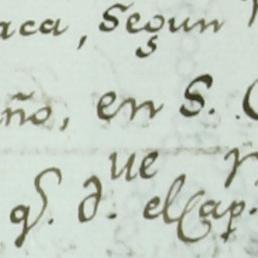 aca, Segun
ño, en S.
q^ue d. el Cap.